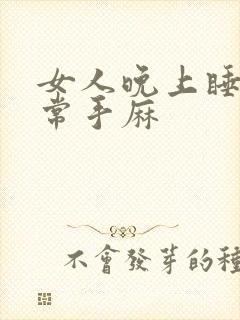 女人晚上睡
常手麻
不會發芽的種